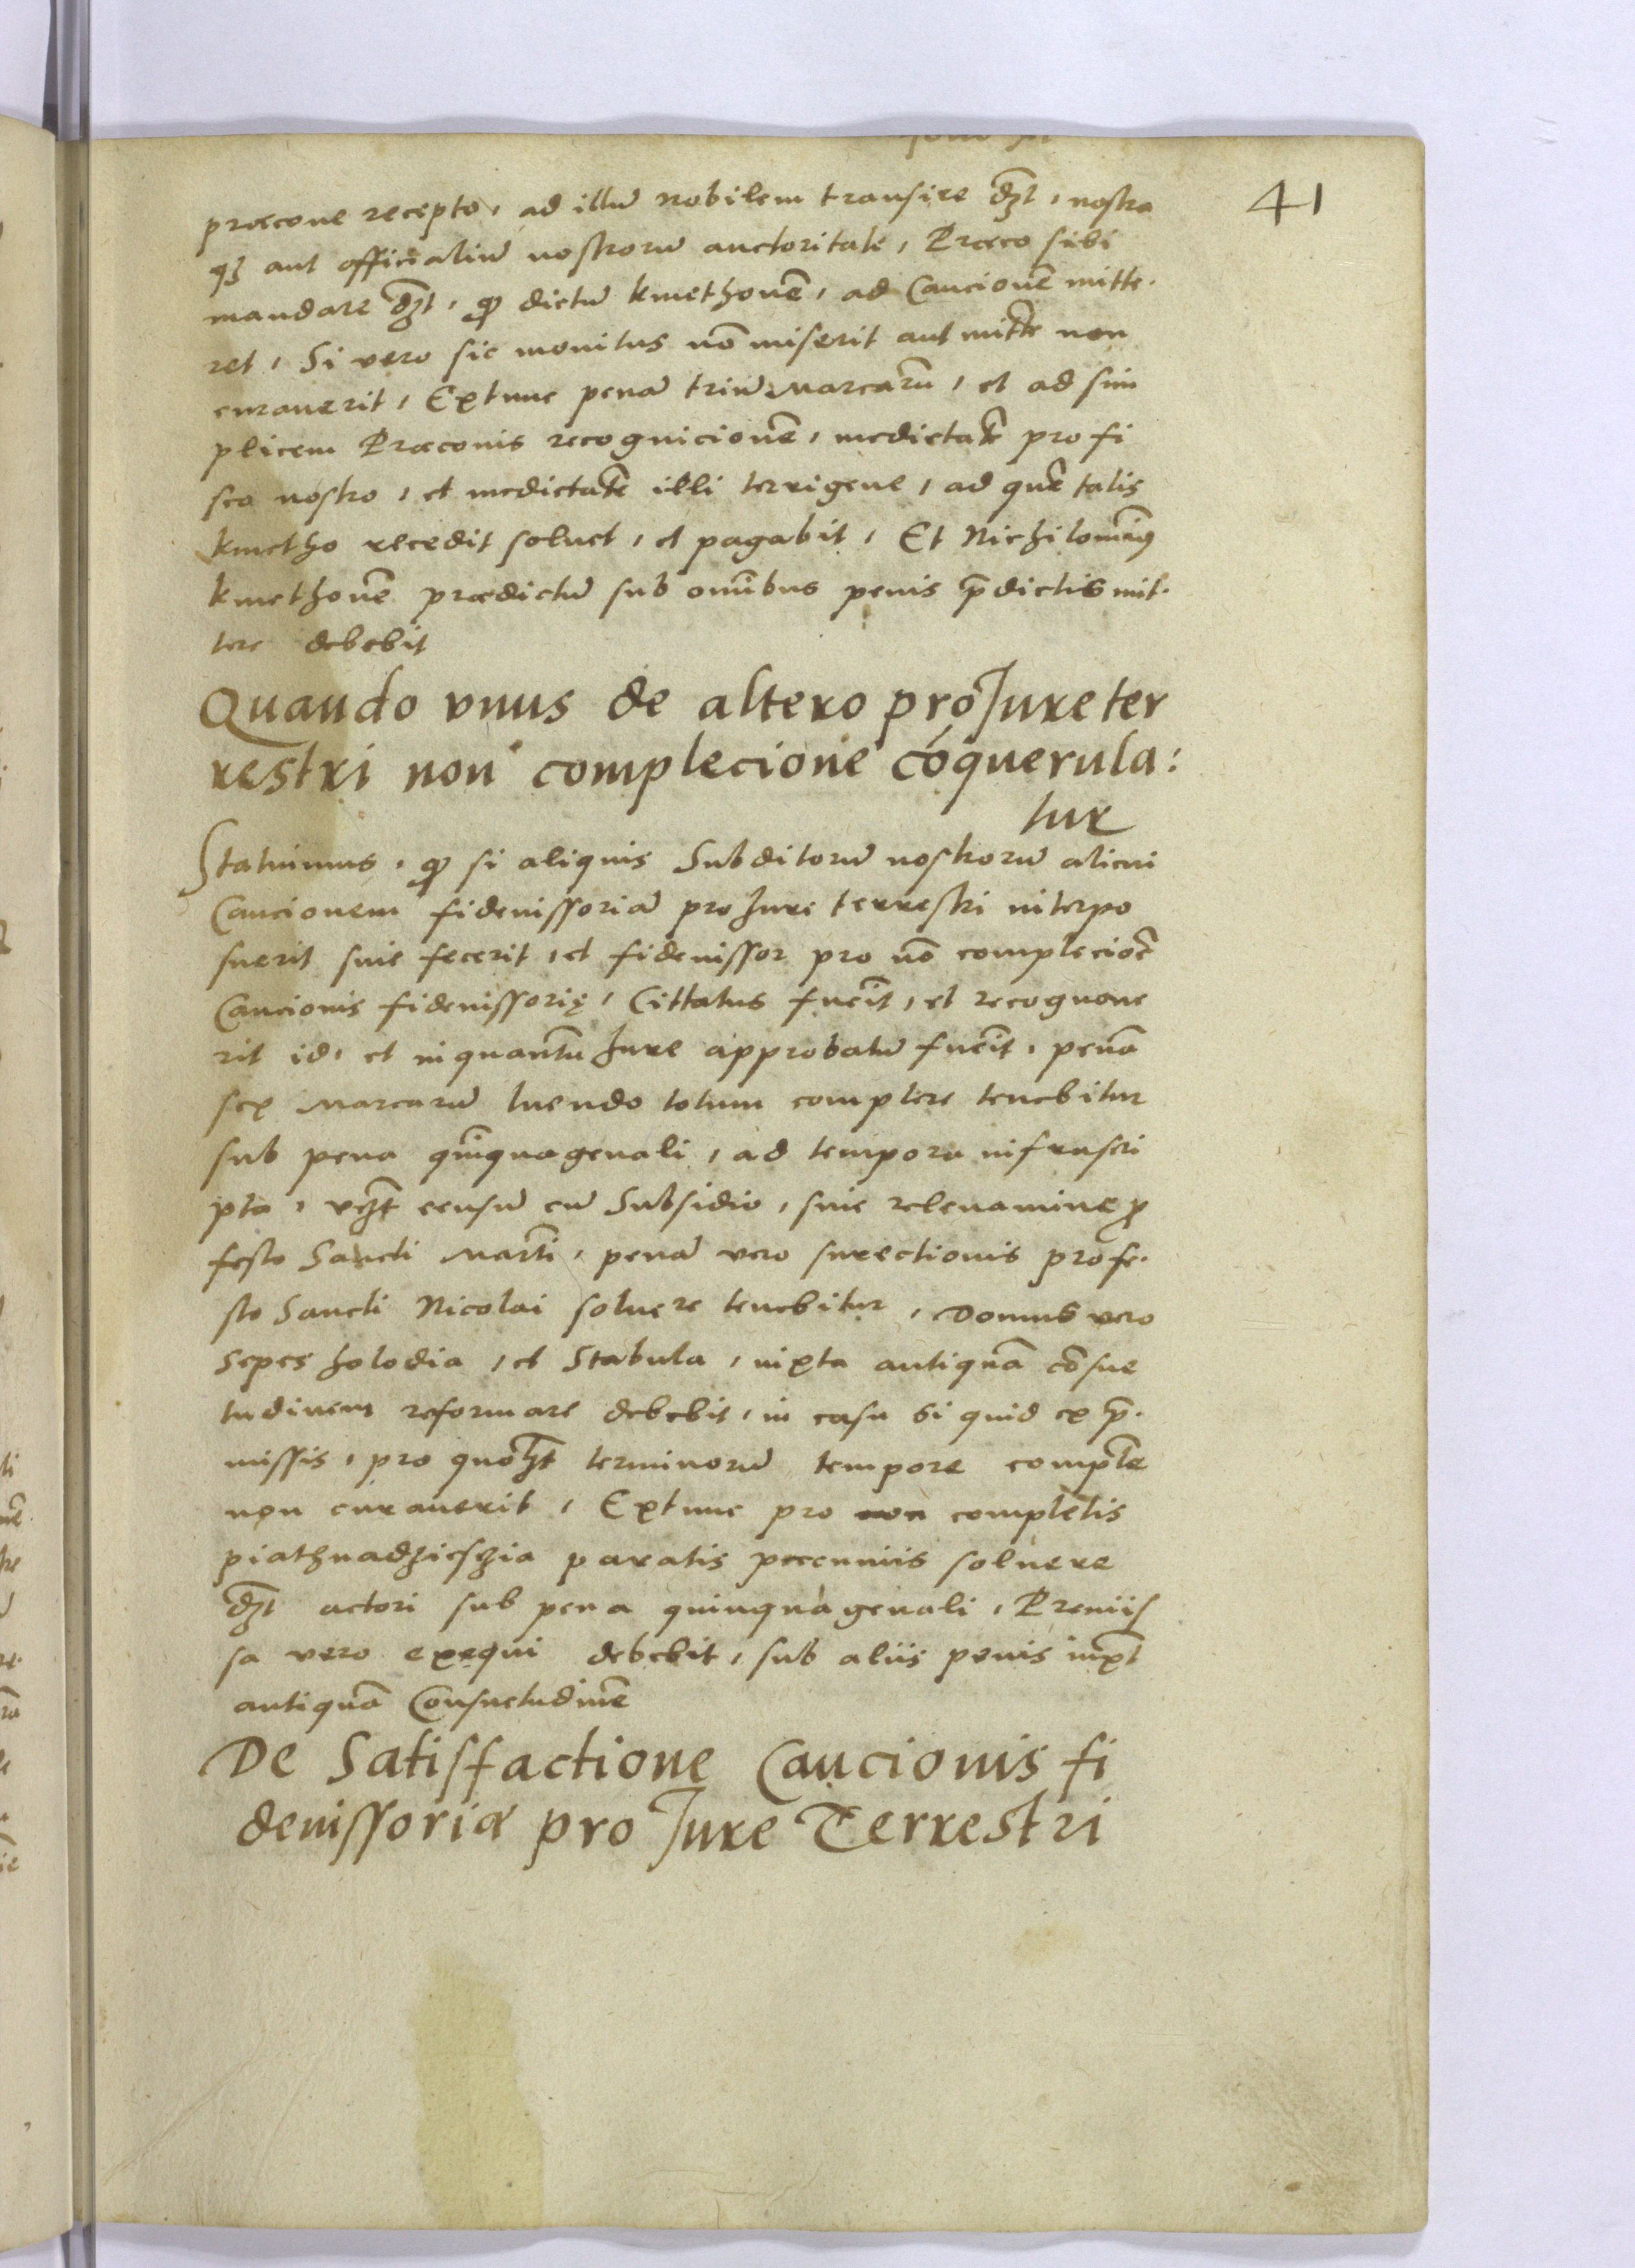 41
præcone recepto, ad illū nobilem transire dꝫt, nostra
qꝫ aut officialiū nostrorū auctoritate, Præco sibi
mandare dꝫt, ꝙ dictū kmethonē, ad Caucionē mitte.
ret, Si vero sic monitus nō miserit aut mittē non
curauerit, Extunc penā triū Marcarū, et ad sim
plicem Præconis recognicionē, medietatē pro fi
sco nostro, et medietatē illi terrigene, ad quē talis
kmetho recedit soluet, et pagabit, Et Nichilomin9
kmethonē prædictū sub omībus penis p̄dictis mit.
tere debebit
Quando vnus de altero pro Jure ter
restri non complecione cōquerula:
tur
Statuimus, ꝙ si aliquis Subditorū nostrorū alicui
Caucionem fideiussoriā pro Jure terrestri interpo
suerit siue fecerit, et fideiussor pro nō complecioē
Caucionis fideiussorię, Cittatus fueīt, et recognoue
rit id, et inquantū Jure approbatū fueīt, penā
sex Marcarū luendo totum complere tenebitur
sub pena quīquagenali, ad tempora infrascri
pta, vꝫt censū cū Subsidio, siue releuamine ꝓ
festo Sancti Martī, penā vero surectionis pro fe.
sto Sancti Nicolai soluere tenebitur, Domus vero
sepes holodia, et Stabula, iuxta antiquā cōsue
tudinem reformare debebit, in casu si quid ex p̄.
missis, pro quolꝫt terminorū tempore complē
non curauerit, Extunc pro non completis
piathnadzieszia paratis pecuniis soluere
dꝫt actori sub pena quinquagenali, Premiis
sa vero exequi debebit, sub aliis penis iuxt
antiquā Consuetudinē
De Satisfactione Caucionis fi
deiussoriæ pro Jure Terrestri